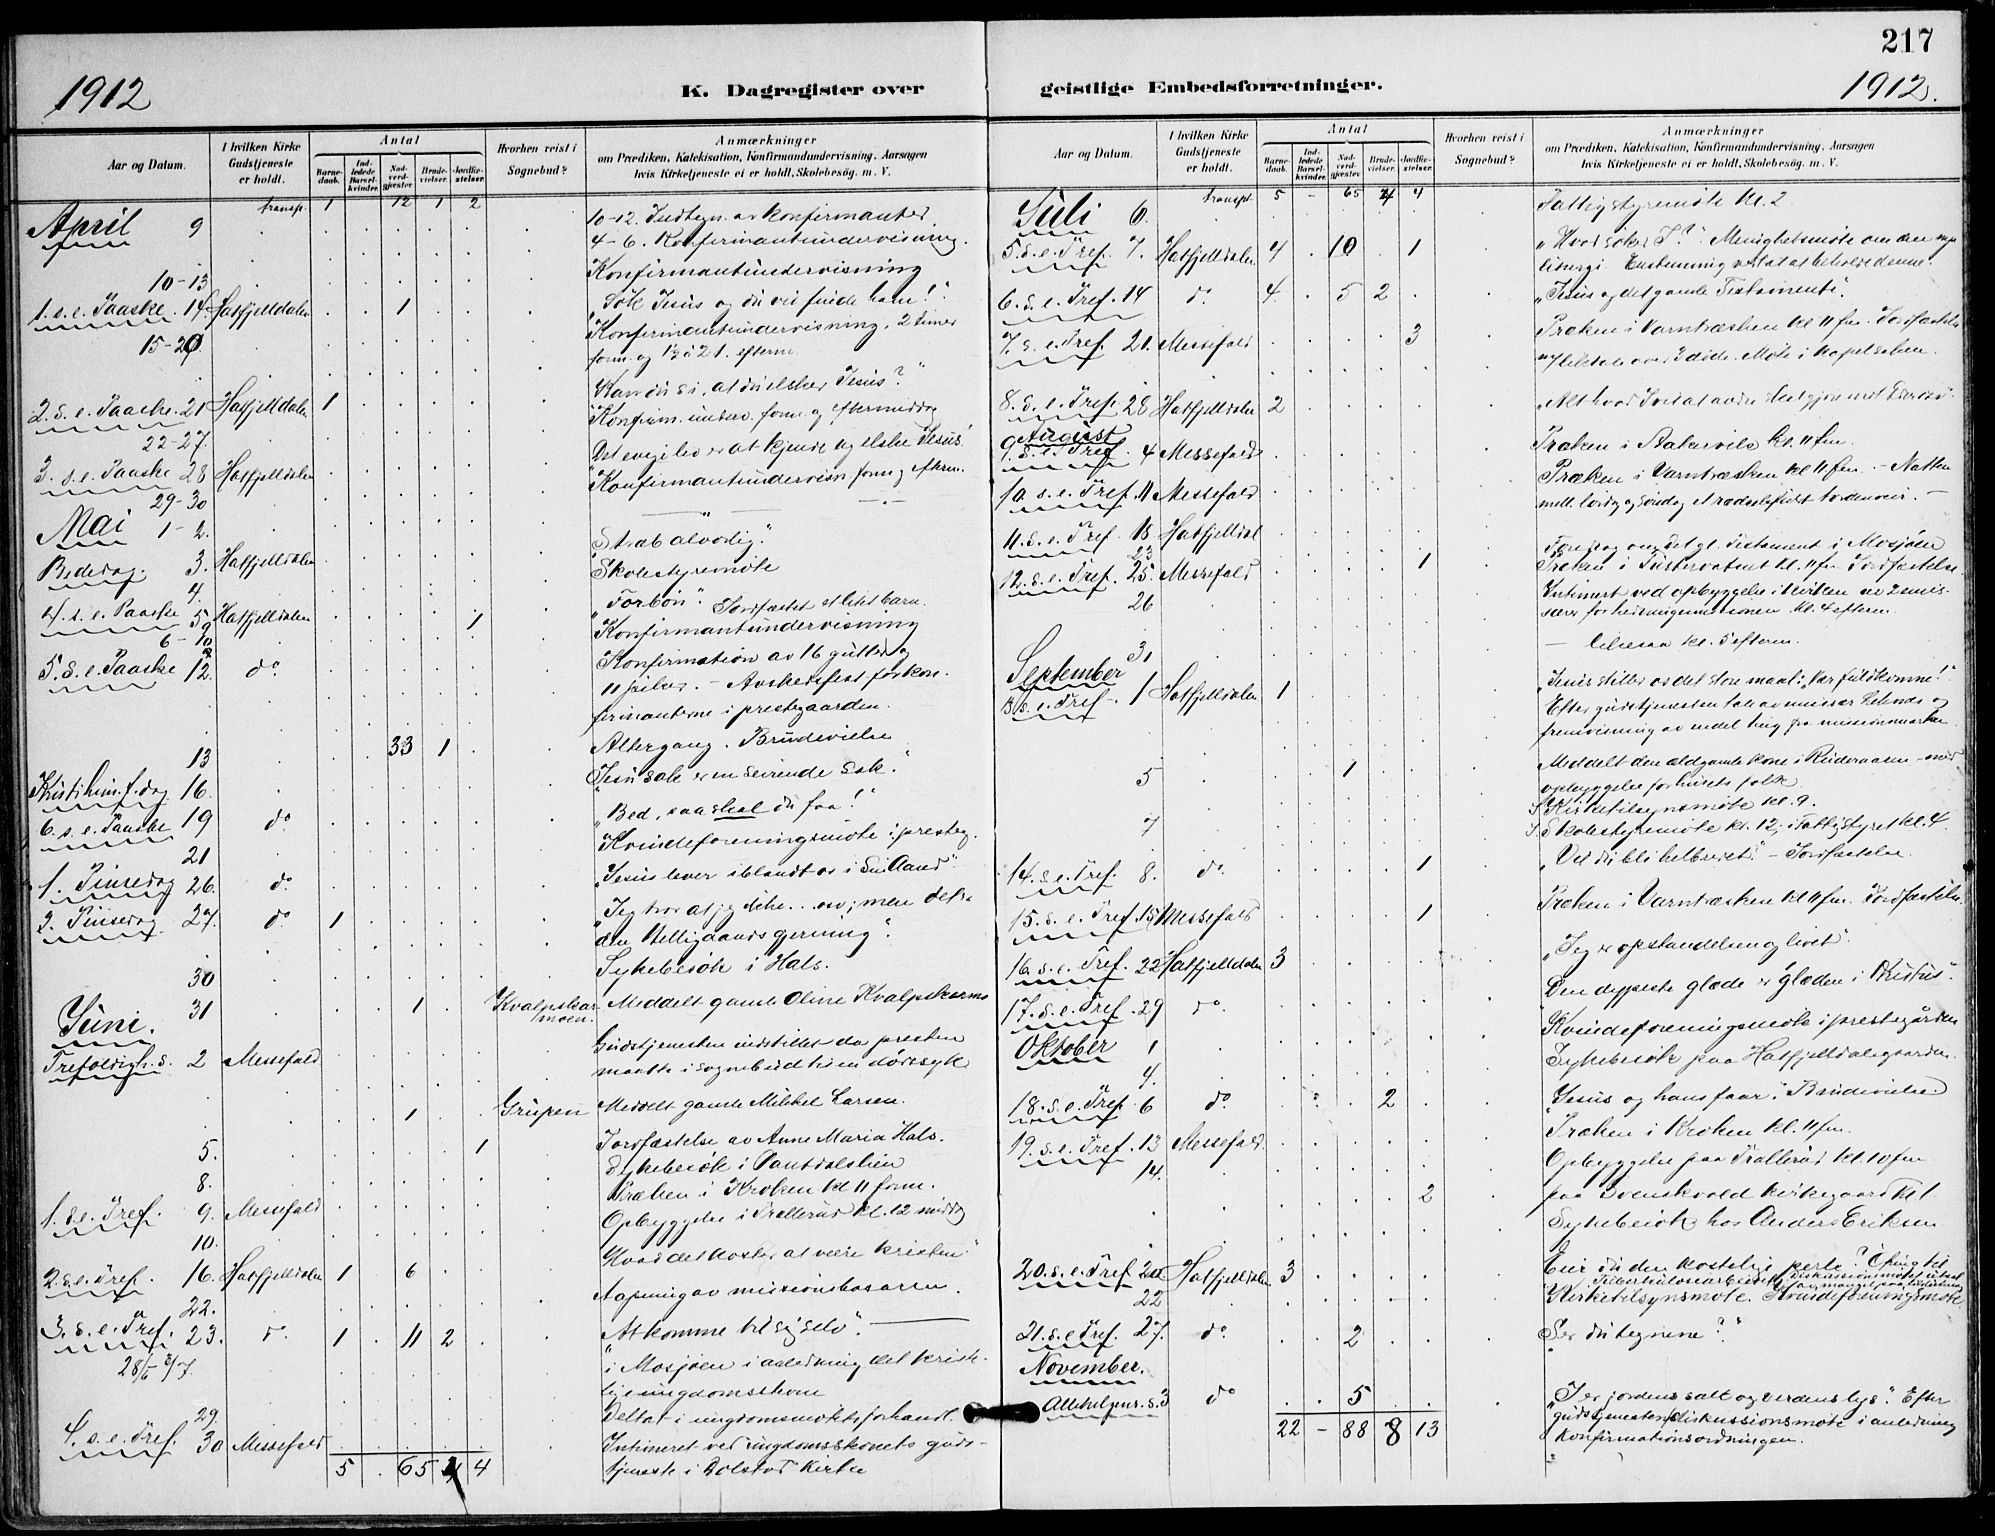 217
1912
K. Dagregister over
geistlige Embedsforretninger.
1912.
Aar og Datum.
I hvilken Kirke Gudstjeneste er holdt.
Antal
Barne-daab.
Ind-ledede Barsel-kvinder.
Nad-verd-gjæster.
Brude-vielser.
Jordfæ-stelser.
Hvorhen reist i Sognebud?
Anmærkninger
om Prædiken, Katekisation, Konfirmandundervisning, Aarsagen
hvis Kirketjeneste ei er holdt, Skolebesøg. m. V.
transp. 1 12 1 2
April 9 10-12. Indtegn. av konfirmanter
4-6. Konfirmantundervisning.
10-13 Konfirmantundervisning
1. s. e. Paaske. 14 Hatfjelldalen 1 "Søk Jesus og du vil finde ham!"
15-20. Konfirmantundervisning, 2 timer
form. og 1½ à 2 t. efterm.
2. s. e. Paaske. 21 Hatfjelldalen 1 "Kan du si, at du elsker Jesus?"
22-27. Konfirm. underv. form. og eftermiddag
3. s. e. Paaske 28 Hatfjelldalen Det evige liv er at kjende og elske Jesus.
29-30 Konfirmantundervisn. form og efterm.
Mai 1-2. — " —
Bededag. 3. Hatfjelldalen "Stræb alvorlig."
4. Skolestyremøte
4. s. e. Paaske 5 Hatfjelldalen 1 "Forbøn". Jordfæstet et litet barn.
6-10 Konfirmantundervisning
5. s. e. Paaske 12. do Konfirmation av 16 gutter og
11 piker. - Avskedsfest for kon-
firmanterne i prestegaarden.
13 33 1 Altergang. Brudevielse
Kristi him. f. dag 16. "Jesu sak er en seirende sak."
6. s. e. Paaske 19 do "Bed, saa skal du faa!"
21 Kvindeforeningsmøte i presteg.
1. Pinsedag 26. do "Jesus lever iblandt os i Sin Aand"
2. Pinsedag 27. do 1 "Jeg tror at jeg ikke... osv; men det er
den Helligaands gjerning".
30 Sykebesøk i Hals.
31 1 Kvalpskar-moen. Meddelt gamle Oline Kvalpskarmo
Juni.
Trefoldigh. s. 2 Messefald Gudstjenesten indstillet da presten
maatte i sognebud til en dødssyk
1 Grupen Meddelt gamle Mikkel Larsen.
5. 1 Jordfæstelse av Anne Maria Hals.
8. Sykebesøk i Pantdalslien
1. s. e. Tref. 9. Messefald Præken i Kroken kl 11 form.
10. Opbyggelse i Trallerud kl. 12 middag
2. s. e. Tref. 16. Hatfjelldalen 1 6 "Hvad det koster at være kristen."
22. Aapning av missionsbasaren.
3. s. e. Tref. 23. do 1 11 2 "At komme til sig selv".
28/6 3/7. i Mosjøen i anledning det krist-
lige ungdomsstevne
29. Deltat i ungdomsmøtets forhandl.
4. s. e. Tref. 30 Messefald Intimeret ved ungdomsstevnets guds-
5 . 65 4 4 tjeneste i Dolstad kirke
Aar og Datum.
I hvilken Kirke Gudstjeneste er holdt.
Antal
Barne-daab.
Ind-ledede Barsel-kvinder.
Nad-verd-gjæster.
Brude-vielser.
Jordfæ-stelser.
Hvorhen reist i Sognebud?
Anmærkninger
om Prædiken, Katekisation, Konfirmandundervisning, Aarsagen
hvis Kirketjeneste ei er holdt, Skolebesög. m. V.
Transp. 5 - 65 4 4
Juli 6. Fattigstyremøte kl. 2.
5. s. e. Tref. 7. Hatfjelldalen 4 10 1 "Hvad søker I?" Menighetsmøte om den nye
liturgi. Enstemmig vedtat at beholde denne.
6. s. e. Tref. 14 do 4 5 2 "Jesus og det gamle Testamente".
7. s. e. Tref. 21. Messefald 3 Præken i Varntræsken kl 11 fm. Jordfæstelse
og liktale over 3 døde. Møte i kapelsaken.
8. s. e. Tref. 28 Hatfjelldalen 2
August
9. s. e. Tref. 4 Messefald Præken i Stekervik kl. 11 fm.
10. s. e. Tref. 11 Messefald Præken i Varntræsken kl 11 fm. - Natten
mell. lørdag og søndag et rædselsfuldt tordenveir. -
11. s. e. Tref. 18 Hatfjelldal
23 Foredrag om det gl. Testament i Mosjøen
12. s. e. Tref. 25. Messefald 1 Præken i Tustervatnet kl. 11 fm. Jordfæstelse
26 Intimert ved opbyggelse i kirken av 2 emis-
særer for hedningemissionen kl. 4 efterm.
31 — kl. 5 efterm.
September
13. s. e. Tref. 1 Hatfjelldalen 1 "Jesus stiller os det store maal: Vær fuldkomne!"
Efter gudstjenesten tale av missær og
fremvisning av endel ting fra missionsmarken
5 1 Meddelt den ældgamle kone i - med
opbyggelse for husets folk
7 Kirketilsynsmøte kl. 9.
Skolestyremøte kl. 12; i Fattigstyret kl. 4.
14. s. e. Tref. 8. do 1 "Vil du bli helbredet". - Jordfæstelse.
15. s. e. Tref. 15 Messefald 1 Præken i Varntræsken kl 11 fm. Jordfæstelse
16. s. e. Tref. 22 Hatfjelldalen 3 "Jeg er opstandelsen og livet".
17. s. e. Tref. 29 do Den dypeste glæde er glæden i Kristus".
Oktober 1 Kvindeforeningsmøte i prestegården
4. Sykebesøk paa Hatfjelldalsgaarden.
18. s. e. Tref. 6 do 2 "Jesus og hans faar". Brudevielse
19. s. e. Tref. 13 Messefald. Præken i Kroken kl. 11 fm.
14. Opbyggelse paa Trallerud kl. 10 fm.
2 paa Svenskvold kirkegaard kl 1
Sykebesøk hos Anders Eriksen
20. s. e. Tref. 20 Hatfjelldalen 3 Eier du den kostelige perle?
22 Kirketilsynsmøte. Kvindeforeningsmøte
21. s. e. Tref. 27. do 2 "Ser du tegnene?"
November.
Allehelgens. s. 3 do 5 "I er jordens salt og verdens lys". Efter
22 - 88 8 13 gudstjenesten diskussionsmøte i anledning
konfirmationsordningen.